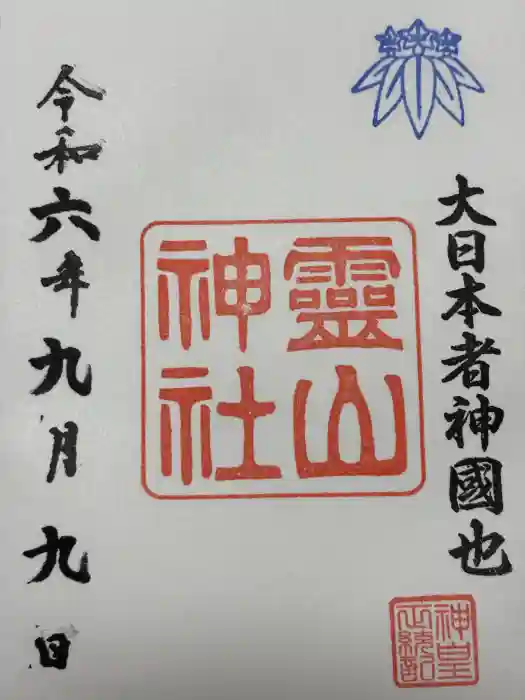 大日本者神國也
神皇
正統記
靈山
神社
令和六年九月九日